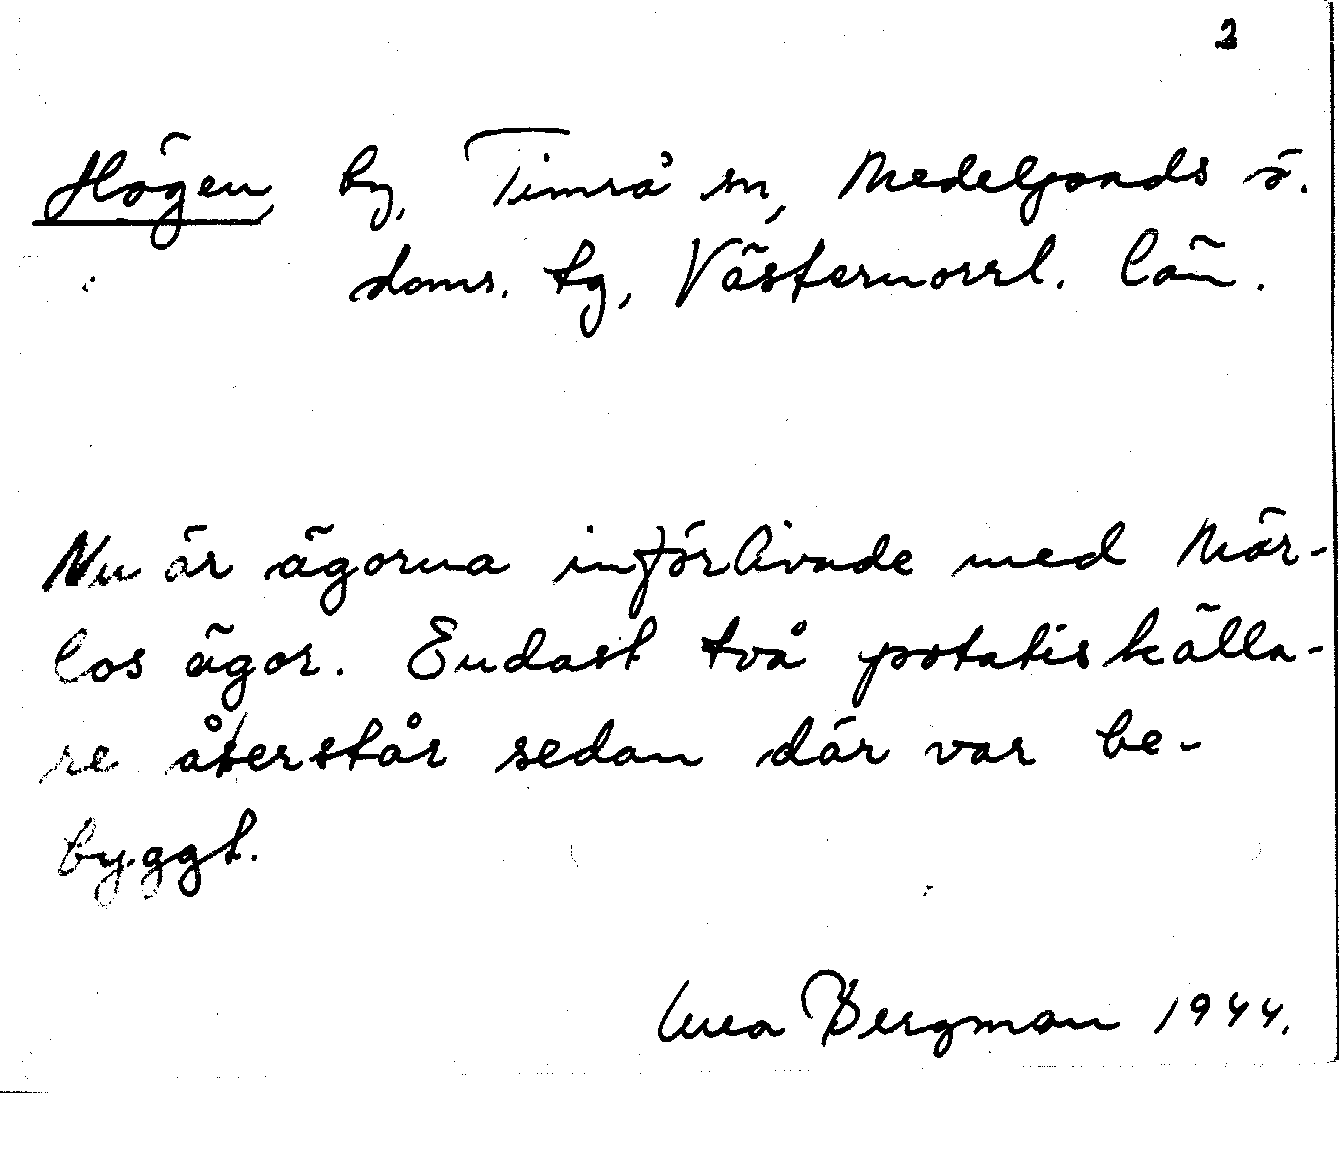 2
Högen by, Timrå sn, Medelpads ö.
doms. tg, Västernorrl. län.
Nu är ägorna införlivade med Mär-
los ägor. Endast två potatiskälla-
re återstår sedan där var be-
byggt.
Bergman 1944.